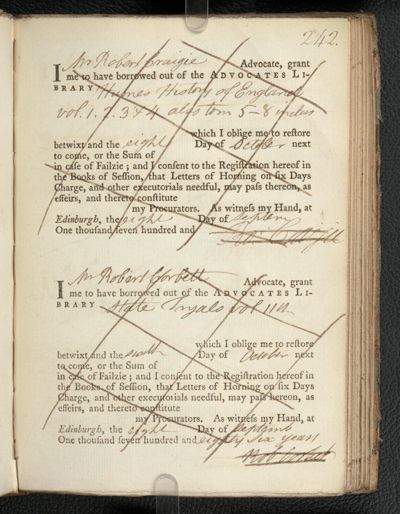 242.
I Mr Robert Craigie Advocate, grant
me to have borrowed out of the ADVOCATES LI-
BRARY Humes History of England
vol. 1. 2. 3 & 4 also tom 5-8
which I oblige me to restore
betwixt and the eight Day of next
to come, or the Sum of
in case of Failzie; and I consent to the Registration hereof in
the Books of Session, that Letters of Horning on six Days
Charge, and other executorials needful, may pass thereon, as
effeirs, and thereto constitute
my Procurators. As witness my Hand, at
Edinburgh, the eight Day of
One thousand seven hundred and
I Mr Robert Corbett Advocate, grant
me to have borrowed out of the ADVOCATES LI-
BRARY State Tryals vol 11th
which I oblige me to restore
betwixt and the Day of October next
to come, or the Sum of
in case of Failzie; and I consent to the Registration hereof in
the Books of Session, that Letters of Horning on six Days
Charge, and other executorials needful, may pass hereon, as
effeirs, and thereto constitute
my Procurators. As witness my Hand, at
Edinburgh, the eight Day of Septemb
One thousand seven hundred and eighty six years
Rob Corbett